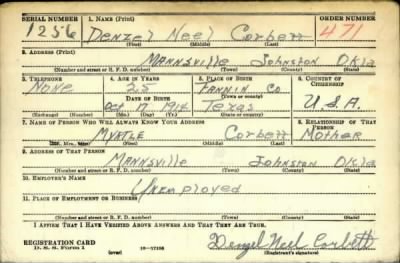 SERIAL NUMBER 1. NAME (Print) ORDER NUMBER
1256 Denzel Neel Corbett 471
(First) (Middle) (Last)
2. ADDRESS (Print)
Mannsville Johnston Okla
(Number and street or R. F. D. number) (Town) (County) (State)
3. TELEPHONE 4. AGE IN YEARS 5. PLACE OF BIRTH 6. COUNTRY OF CITIZENSHIP
None 25 Fannin Co
DATE OF BIRTH (Town or county)
Oct 17 1914 Texas U.S.A.
(Exchange) (Number) (Mo.) (Day) (Yr.) (State or country)
7. NAME OF PERSON WHO WILL ALWAYS KNOW YOUR ADDRESS 8. RELATIONSHIP OF THAT PERSON
Myrtle Corbett Mother
(Mr., Mrs., Miss) (First) (Middle) (Last)
9. ADDRESS OF THAT PERSON
Mannsville Johnston Okla
(Number and street or R. F. D. number) (Town) (County) (State)
10. EMPLOYER'S NAME
Unemployed
11. PLACE OF EMPLOYMENT OR BUSINESS
(Number and street or R. F. D. number) (Town) (County) (State)
I AFFIRM THAT I HAVE VERIFIED ABOVE ANSWERS AND THAT THEY ARE TRUE.
REGISTRATION CARD
D. S. S. Form 1 (over) 16—17105 Denzel Neel Corbett
(Registrant's signature)